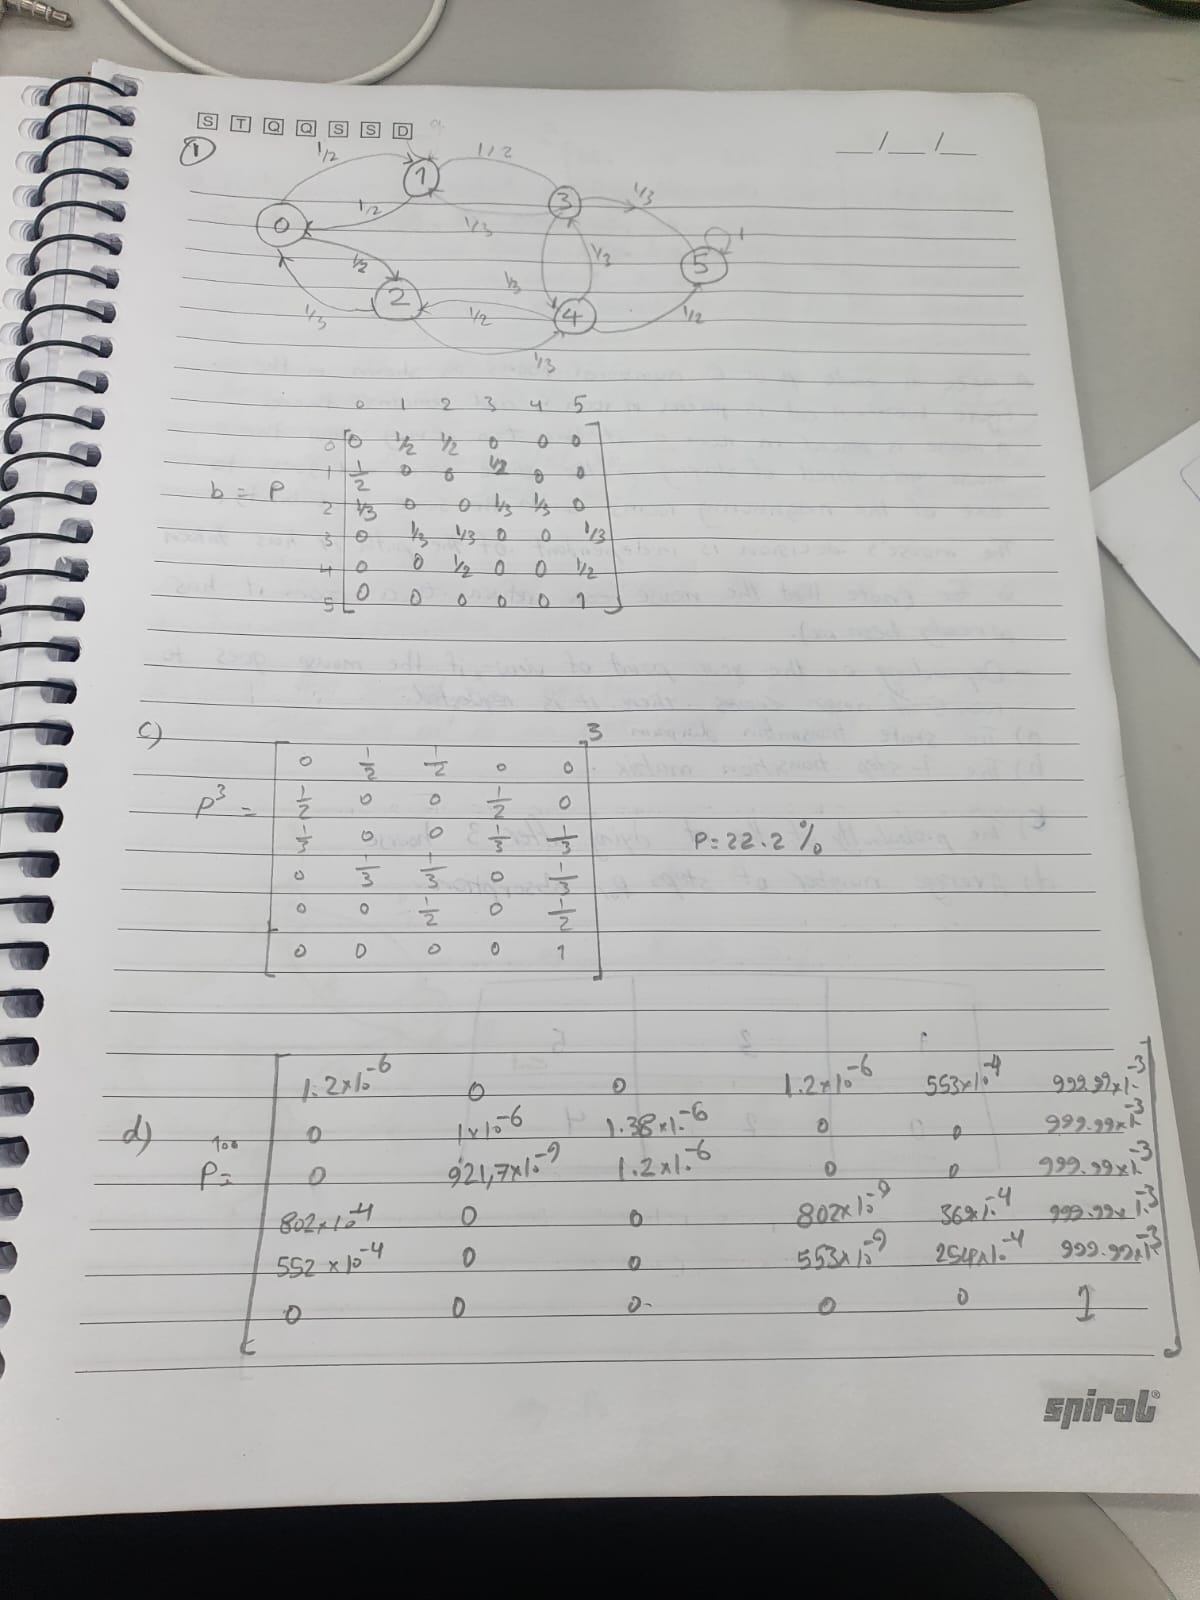 S T Q Q S S D
__/__/__
①
1/2 1/2
1
1/2 3 1/3
0 1/3 1
1/2 1/3 1/3 5
2
1/3 1/2 4 1/2
1/3
0 1 2 3 4 5
0 0 1/2 1/2 0 0 0
1 1/2 0 0 1/2 0 0
b = P
2 1/3 0 0 1/3 1/3 0
3 0 1/3 1/3 0 0 1/3
4 0 0 1/2 0 0 1/2
5 0 0 0 0 0 1
c) 3
0 1/2 1/2 0 0
P³ = 1/2 0 0 1/2 0
1/3 0 0 1/3 1/3 P=22.2%
0 1/3 1/3 0 1/3
0 0 1/2 0 1/2
0 0 0 0 1
1.2×10⁻⁶ 0 0 1.2×10⁻⁶ 553×10⁻⁴ 999.99×10⁻³
d) 0 1×10⁻⁶ 1.38×10⁻⁶ 0 0 999.99×10⁻³
P¹⁰⁰= 0 921,7×10⁻⁹ 1.2×10⁻⁶ 0 0 999.99×10⁻³
802×10⁻⁴ 0 0 802×10⁻⁹ 369×10⁻⁴ 999.99×10⁻³
552×10⁻⁴ 0 0 553×10⁻⁹ 254×10⁻⁴ 999.99×10⁻³
0 0 0 0 0 1
spiral®